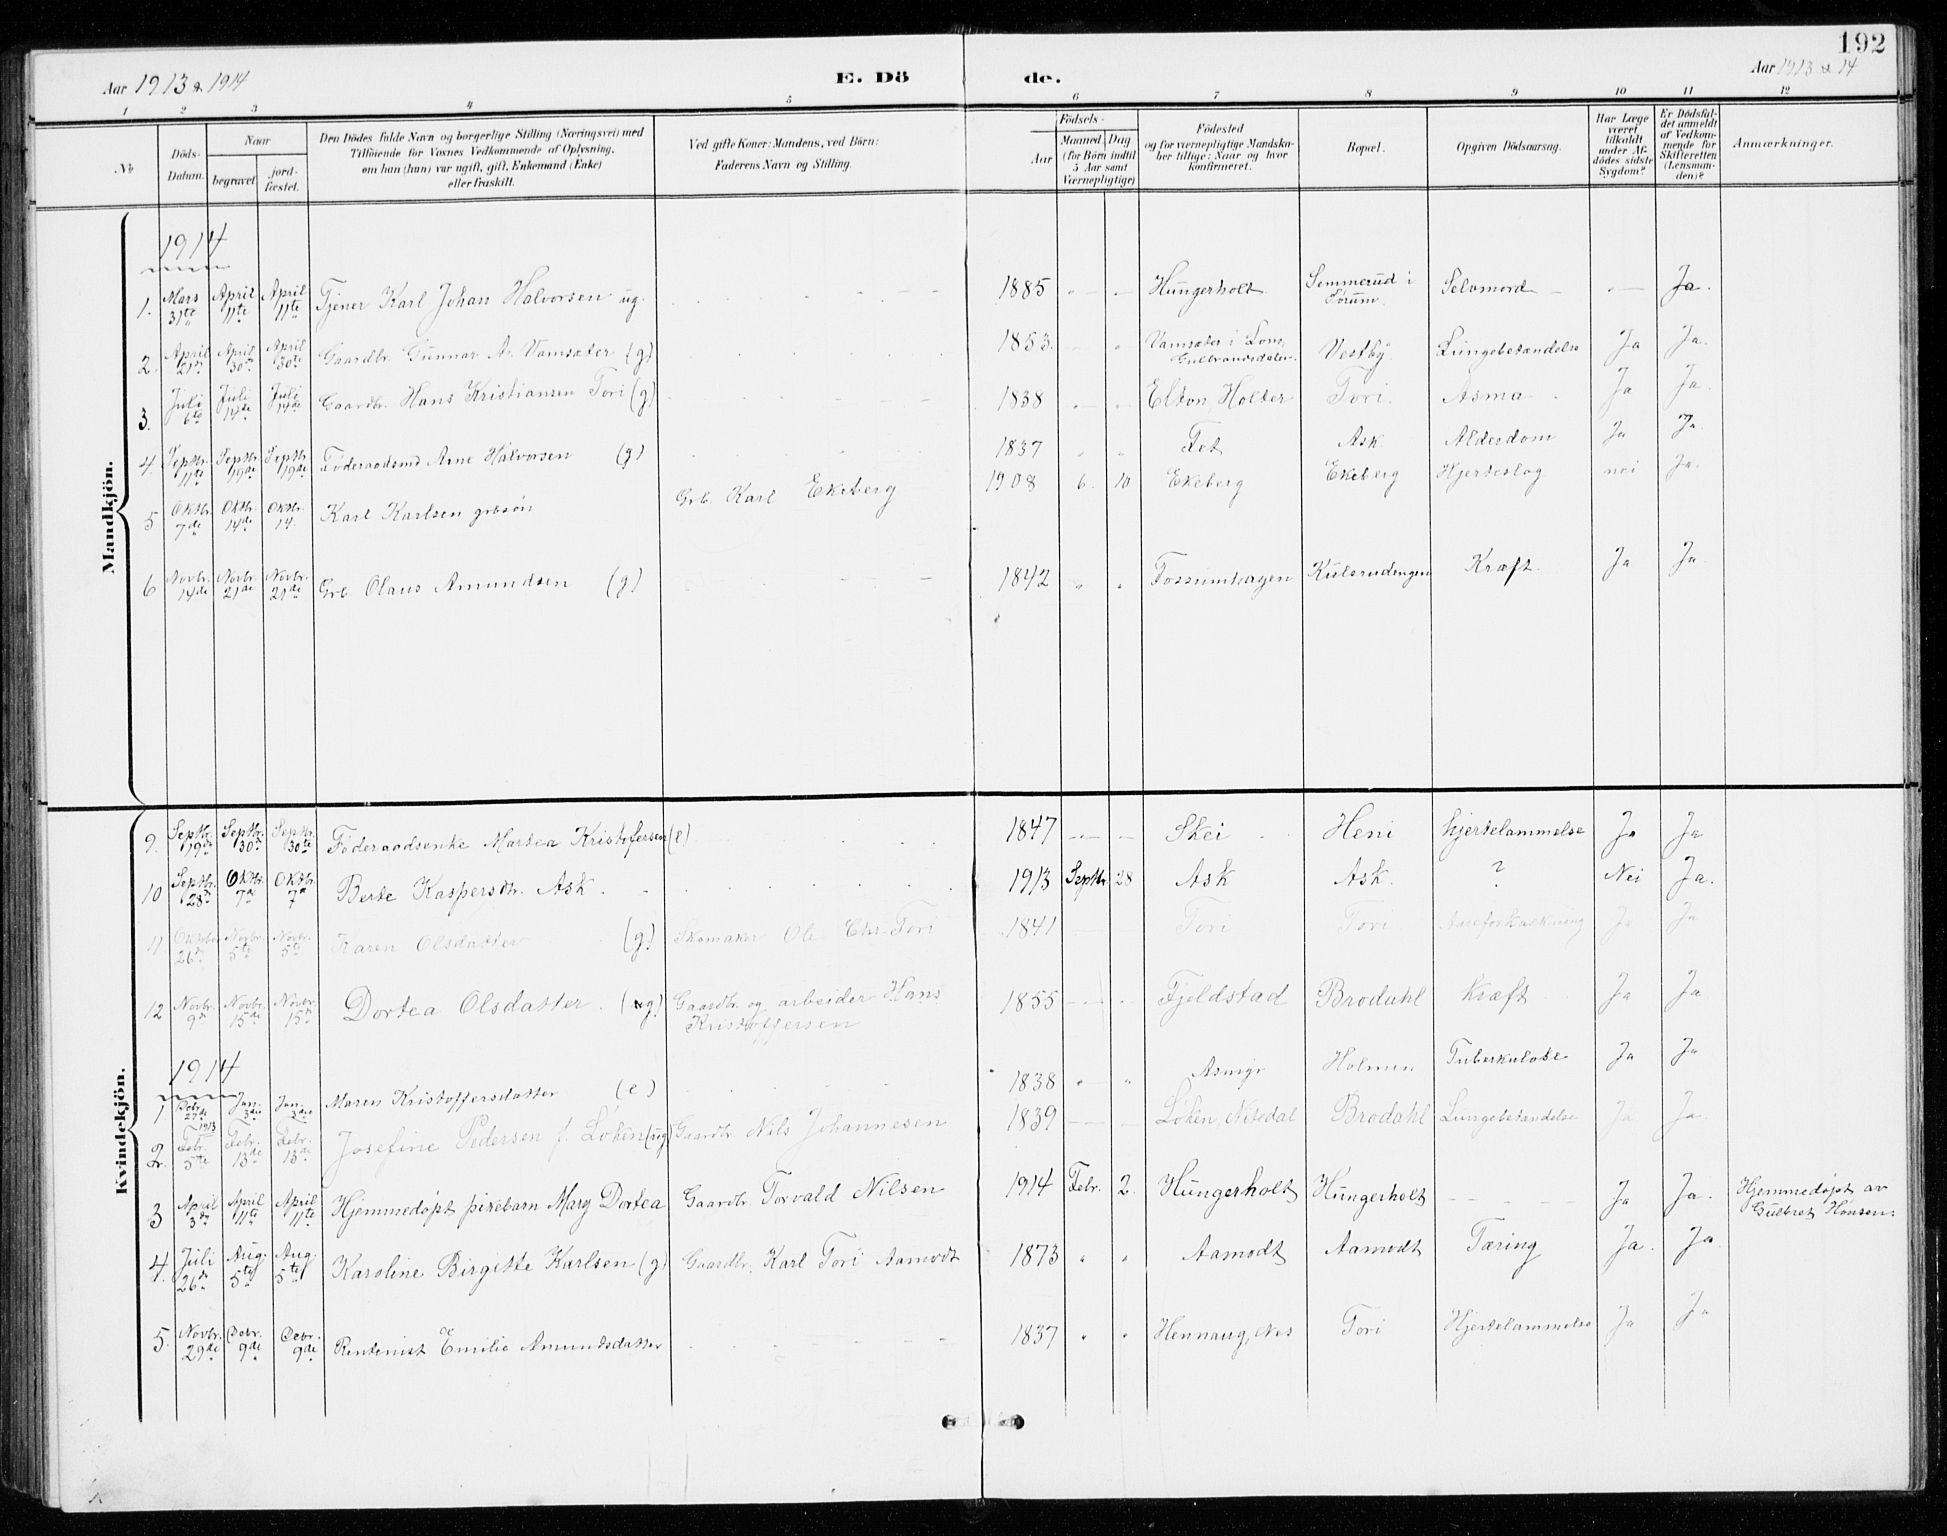 192
Aar 1913 & 1914 E. Dö de. Aar 1913 & 14
1 2 3 4 5 6 7 8 9 10 11 12
No Döds-Datum. Naar begravet jordfæstet. Den Dödes fulde Navn og borgerlige Stilling (Næringsvei) med Tilföiende for Voxnes Vedkommende af Oplysning, om han (hun) var ugift, gift, Enkemand (Enke) eller fraskilt. Ved gifte Koner: Mandens, ved Börn: Faderens Navn og Stilling. Födsels- Aar Maaned Dag (for Börn indtil 5 Aar samt Værnepligtige) Födested og for værnepligtige Mandskaber tillige: Naar og hvor konfirmeret. Bopæl. Opgiven Dödsaarsag. Har Læge været tilkaldt under Afdödes sidste Sygdom? Er Dödsfaldet anmeldt af Vedkommende for Skifteretten (Lensmanden)? Anmærkninger.
Mandkjön.
1914
1. Mars 31te April 11te April 11te Tjener Karl Johan Halvorsen ug. 1885 Hungerholt Semmerud i Sørum Selvmord Ja.
2. April 21de April 30de April 30de Gaardbr. Gunnar A. Vamsæter (g) 1853. Vamsæter i Lom, Gulbrandsdalen. Vestby Lungebetændelse Ja Ja.
3. Juli 6te Juli 14de Juli 14de Gaardbr. Hans Kristiansen Tori (g) 1838 Elton, Holter Tori. Asma Ja Ja.
4. Septbr. 11te Septbr. 19de Septbr. 19de Føderaadsmd Arne Halvorsen (g) 1837 Fet Ask Alderdom Ja Ja.
5 Oktbr. 7de Oktbr. 14de Oktbr. 14. Karl Karlsen grbsøn Grb. Karl Ekeberg 1908 6. 10 Ekeberg Ekeberg Hjerteslag nei Ja.
6 Novbr. 14de Novbr. 21de Novbr. 21de Grb. Olaus Amundsen (g) 1842 Fossumhagen Kulsrudengen Kræft. Ja Ja.
Kvindekjön.
9. Septbr. 19de Septbr. 30te Septbr. 30te Føderaadsenke Martea Kristofersen (e) 1847 Skei Heni hjertelammelse Ja Ja
10 Septbr. 28de Oktbr. 7de Oktbr. 7de Berte Kaspersdtr. Ask. 1913 Septbr. 28 Ask Ask. ? Nei Ja.
11. Oktober 26de Novbr. 5te Novbr. 5te Karen Olsdatter (g) Skomaker Ole Chr. Tori 1841 Tori Tori Aareforkalkning Ja Ja
12 Novbr. 9de Novbr. 15de Novbr. 15de Dortea Olsdatter. (g) Gaardbr. og arbeider Hans Kristoffersen 1855 Fjeldstad Brodahl Kræft Ja Ja
1914
1 Debr. 27de 1913 Jan. 3die Jan. 3die Maren Kristoffersdatter (e) 1838 Asmyr Holmen Tuberkulose Ja Ja
2. Febr. 5te Febr. 13de Febr. 13de Josefine Pedersen f. Løken (ug) Gaardbr. Nils Johannesen 1839 Løken, Nitedal Brodahl Lungebetændelse Ja Ja.
3 April 3de April 11te April 11te Hjemmedøpt pikebarn Mary Dortea Gaardbr. Torvald Nilsen 1914 Febr. 2. Hungerholt Hungerholt Ja Ja. Hjemmedøpt av Gulbret Hønsen.
4. Juli 26de Aug. 5te Aug. 5te Karoline Birgitte Karlsen (g) Gaardbr. Karl Tori Aamodt 1873 Aamodt Aamodt Tæring Ja. Ja
5. Novbr. 29de Debr. 9de Debr. 9de Rentenist Emilie Amundsdatter 1837 Hennaug, Nes Tori Hjertelammelse Ja Ja